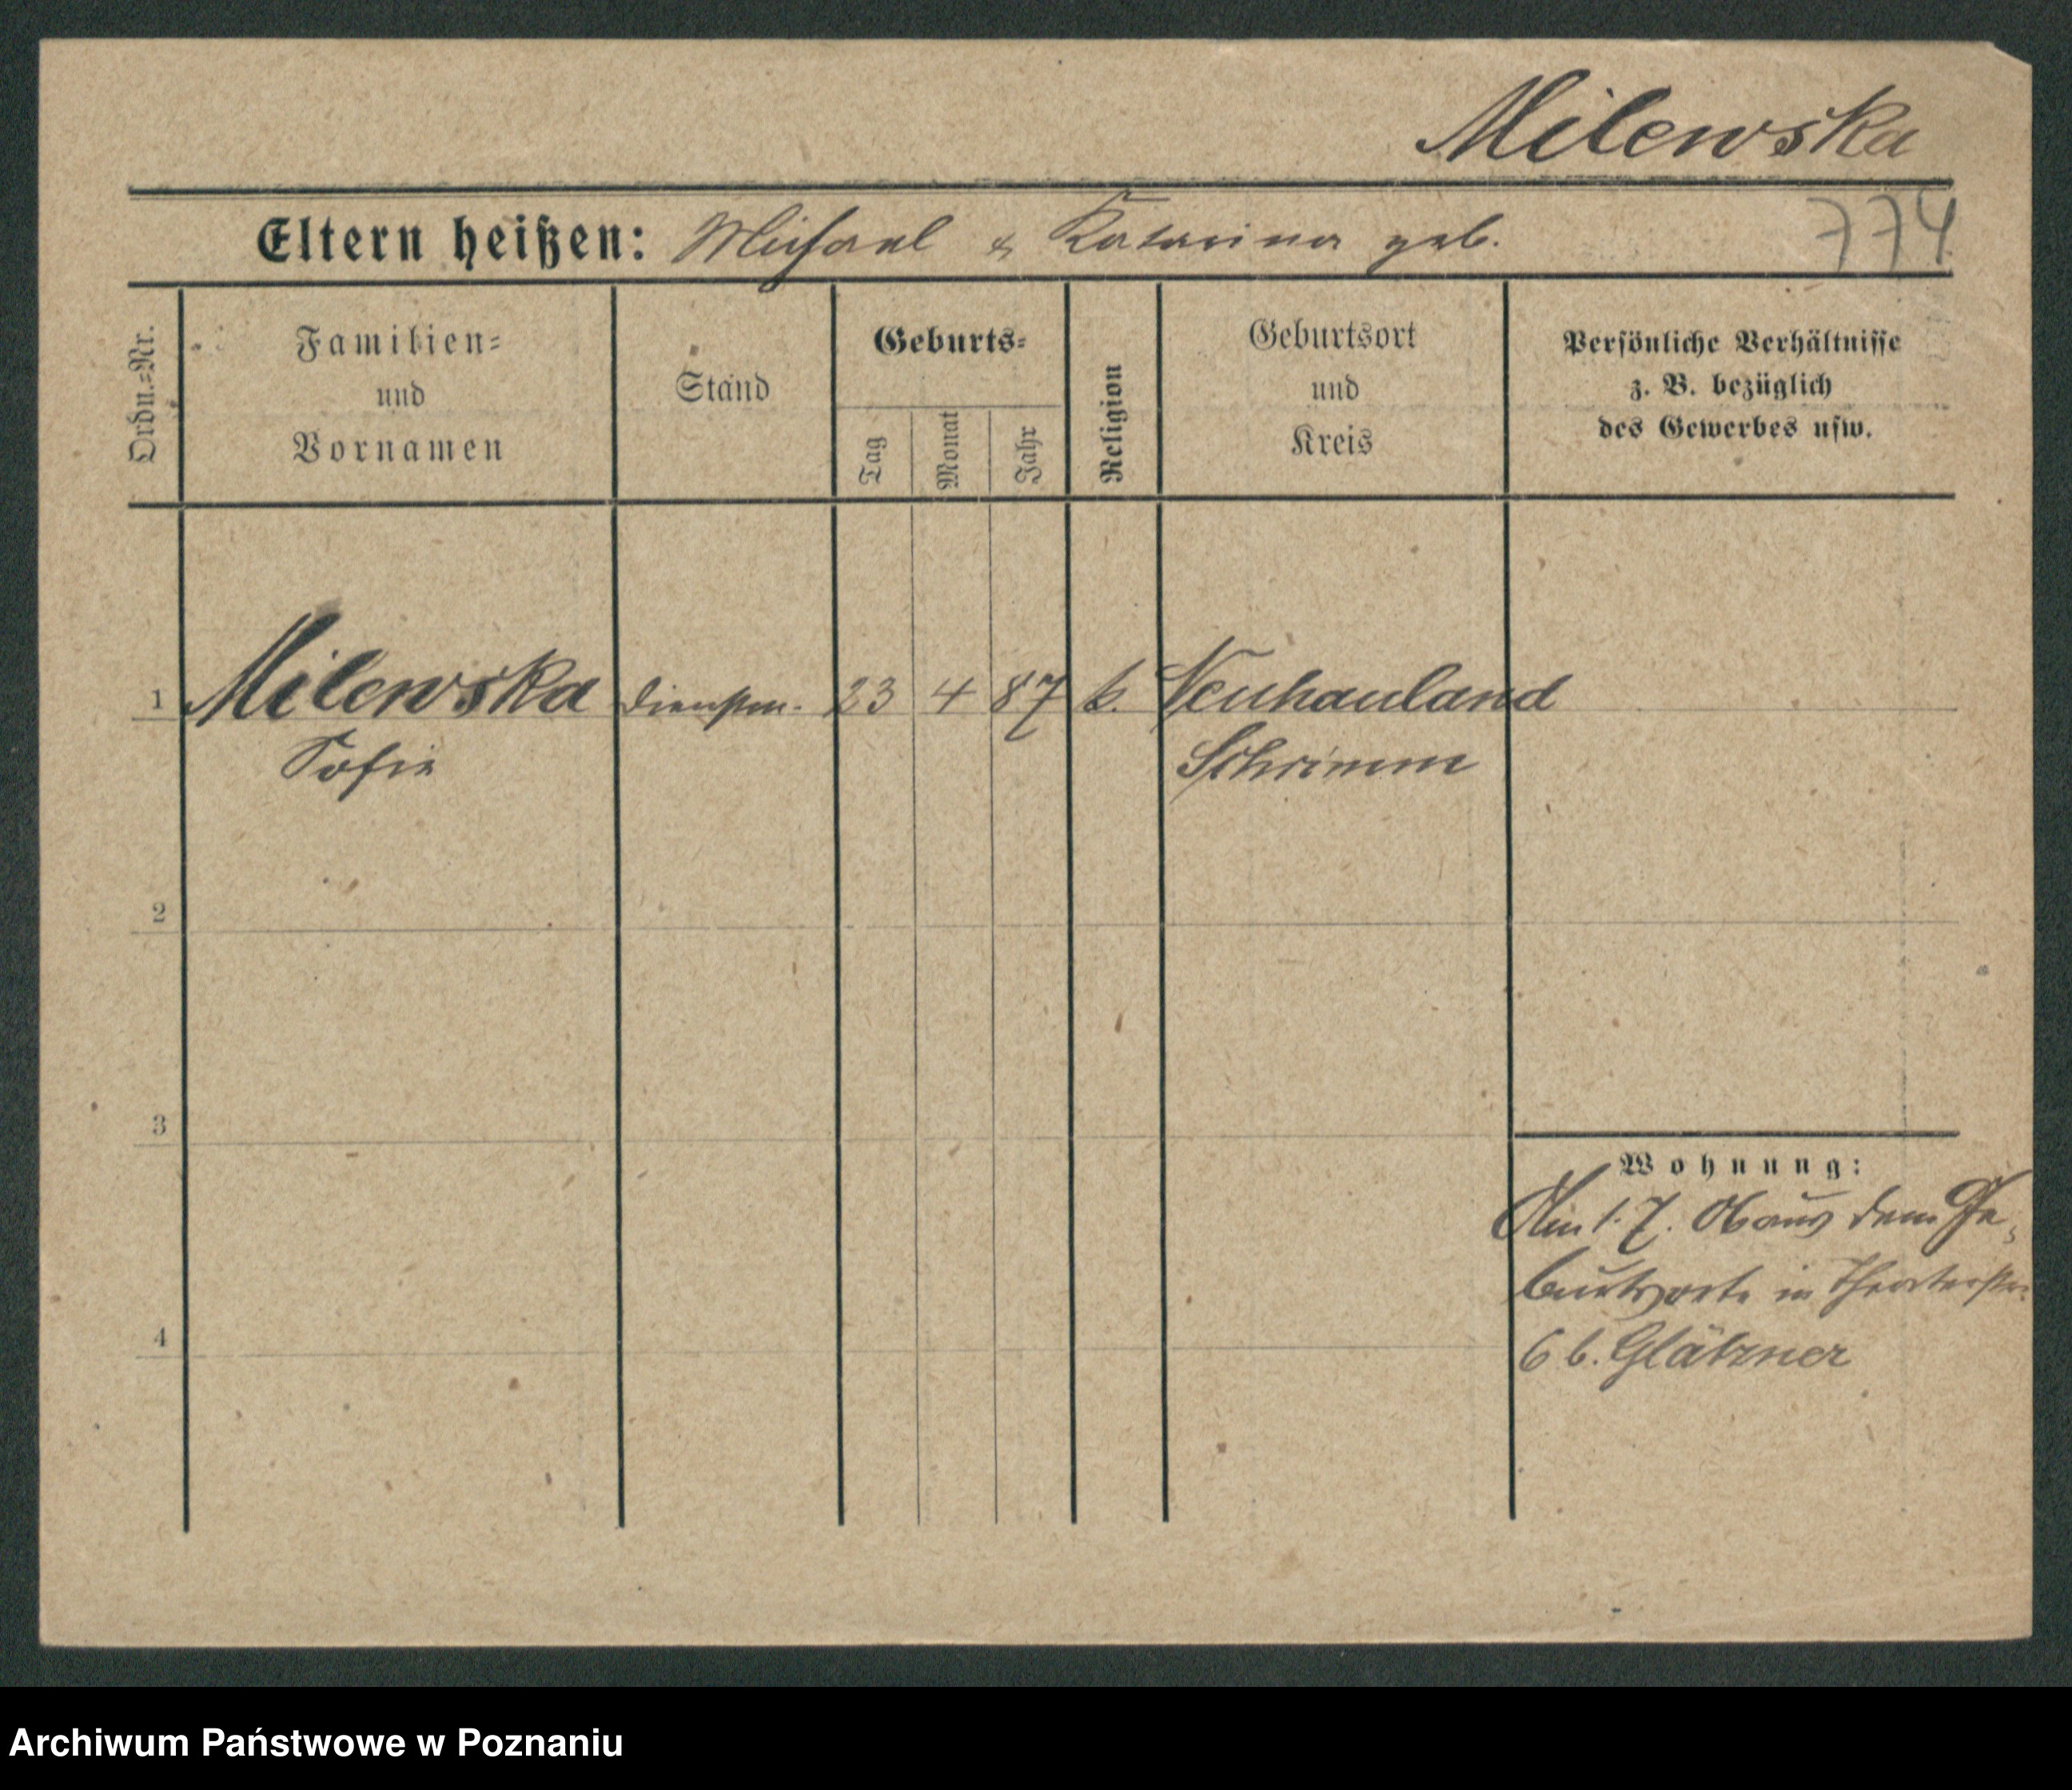 Milewska
Eltern heißen: Michael & Katarina geb.
774
Ordn.=Nr.
Familien=
und
Vornamen
Stand
Geburts=
Tag
Monat
Jahr
Religion
Geburtsort
und
Kreis
Persönliche Verhältnisse
z. B. bezüglich
des Gewerbes usw.
1 Milewska Dienstm. 23 4 87 k. Neuhauland
Sofie Schrimm
2
3
4
Wohnung:
Am 1. 7. 06 aus dem Ge-
burtsorte in Theaterstr.
6 b. Glätzner
Archiwum Państwowe w Poznaniu